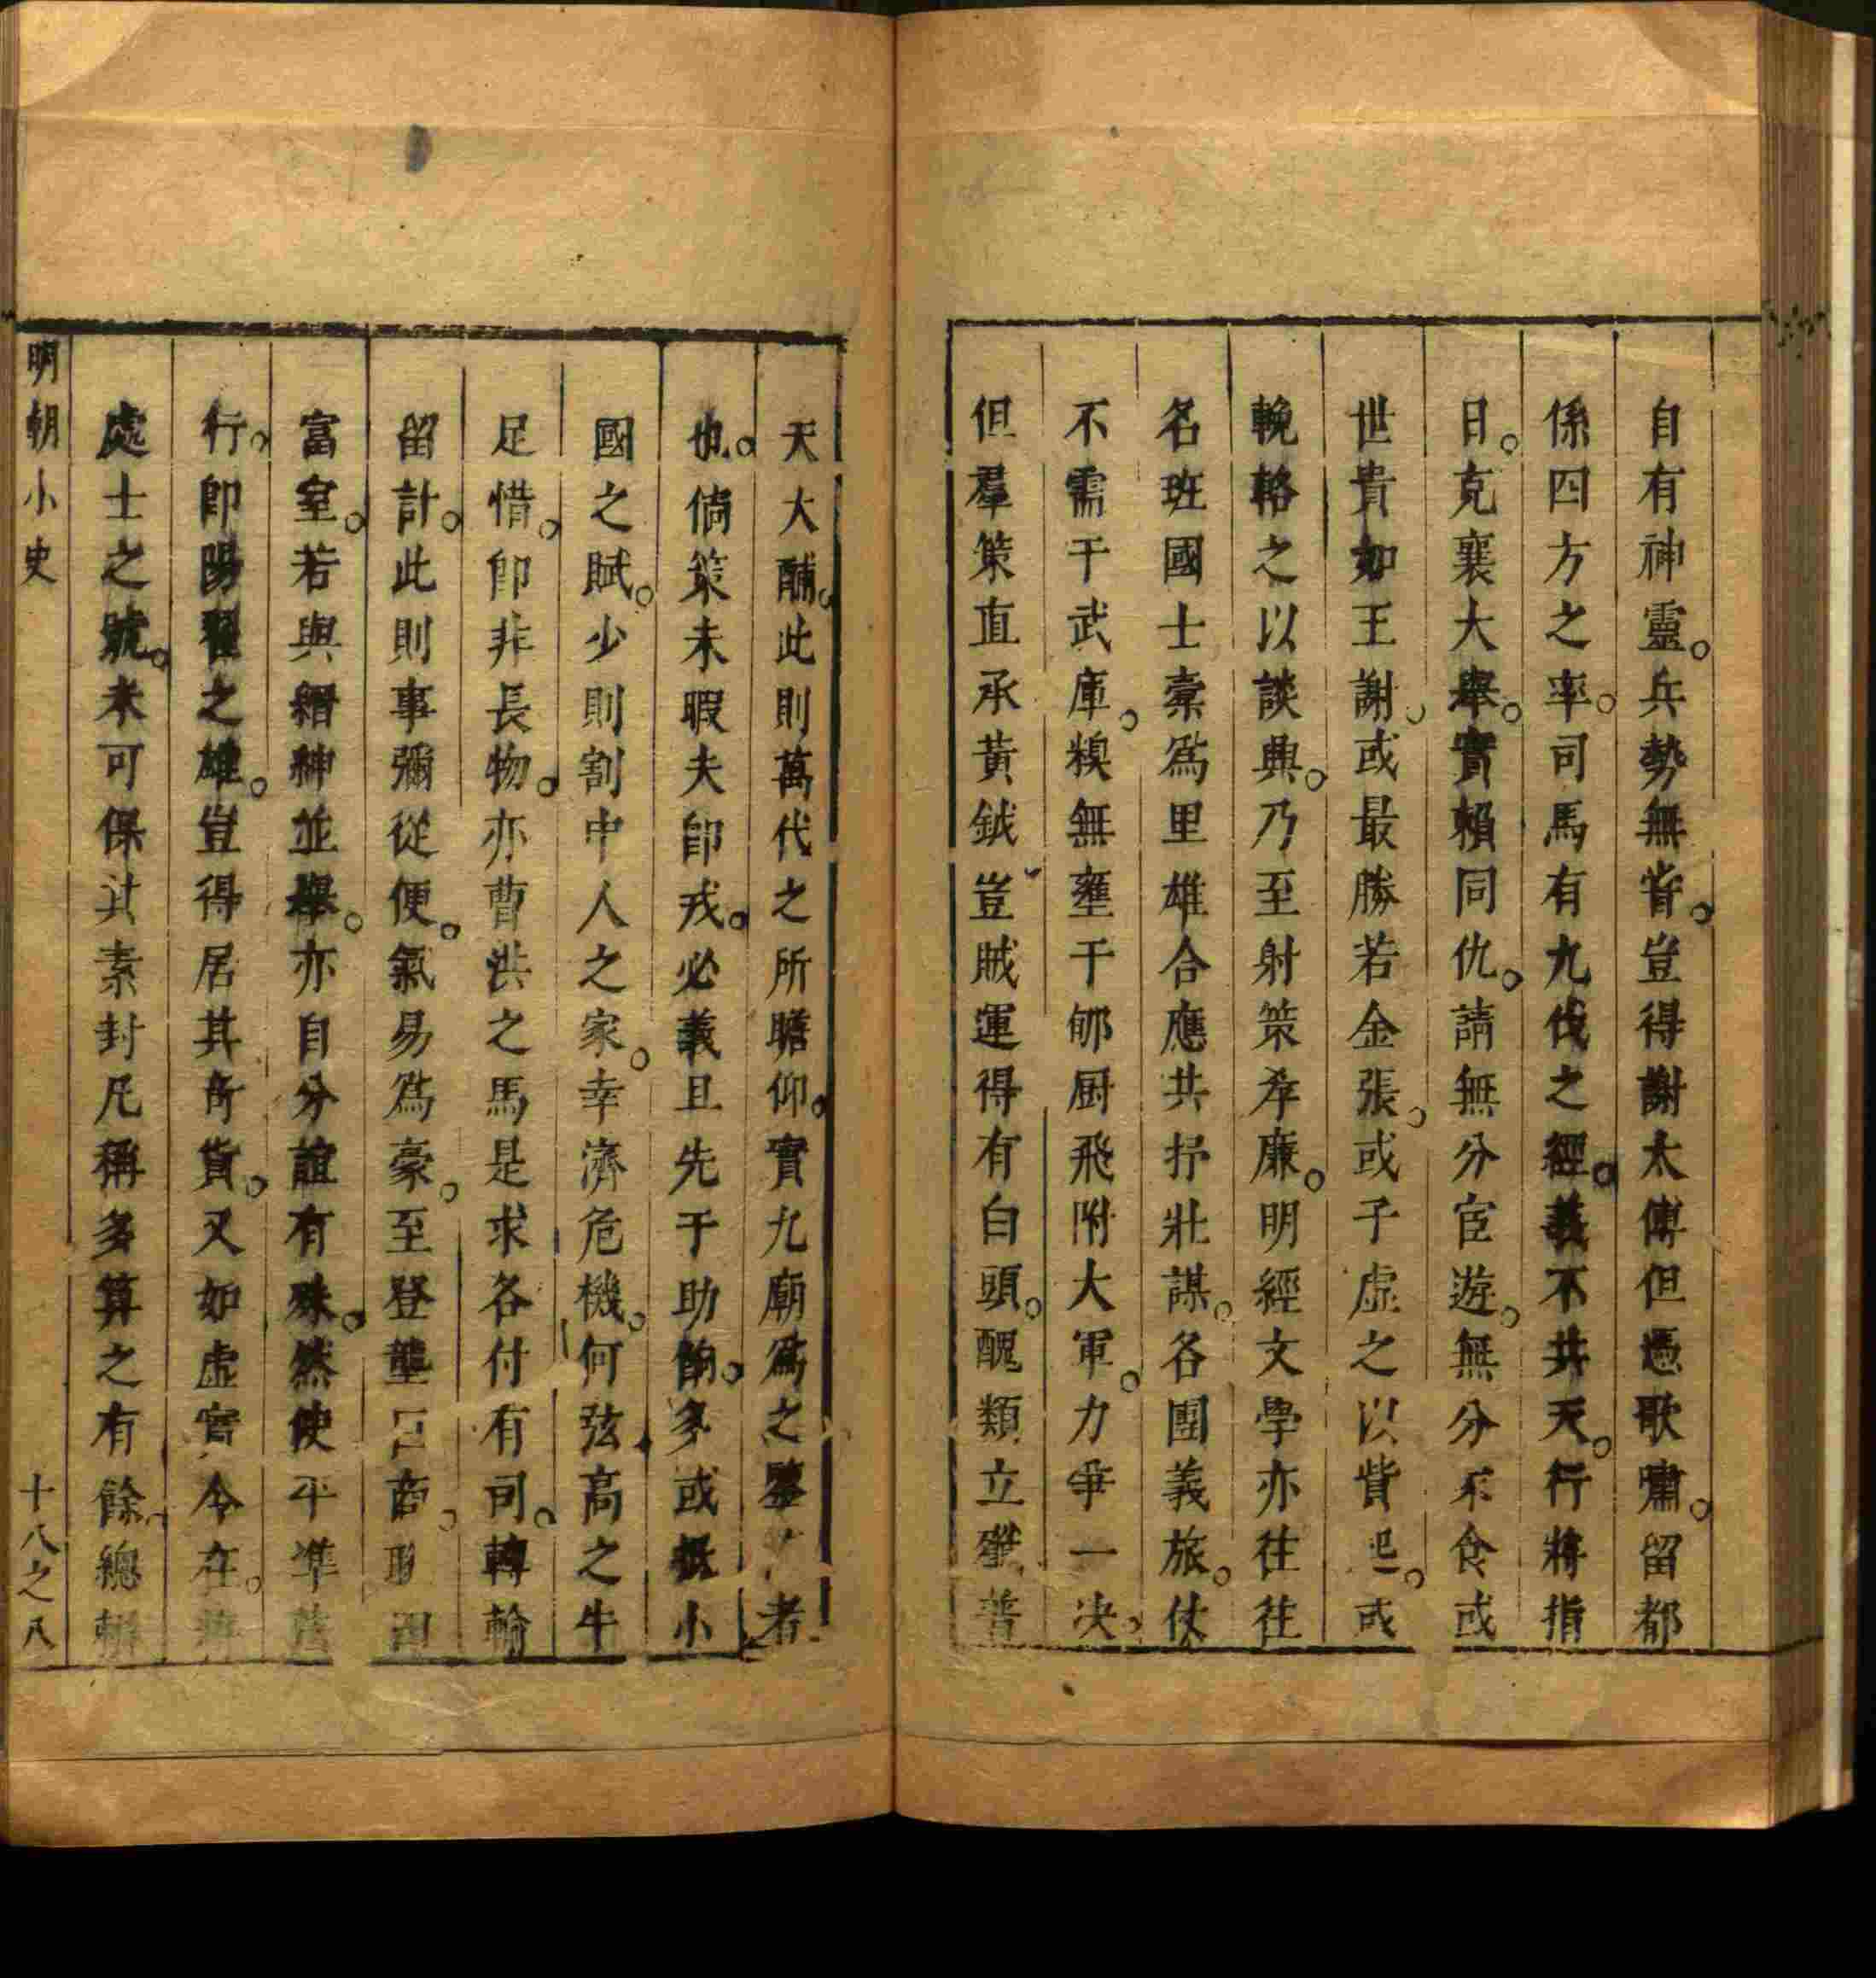 自有神靈。兵勢無常。豈得謝太傅但憑歌嘯。留都
係四方之率。司馬有九伐之經。義不共天。行將指
日。克襄大舉。實賴同仇。請無分宦遊。無分家食或
世貴如王謝。或最勝若金張。或子虛之以貲起。或
輓輅之以談興。乃至射策孝廉。明經文學亦往往
名班國士橐爲里雄合應共抒壯謀。各團義旅。仗
不需于武庫。糗無壅于郇厨飛附大軍。力爭一决。
但羣策直承黃鉞豈賊運得有白頭。醜類立殲普
天大酺。此則萬代之所瞻仰。實九廟爲之鑒 者
也。倘策未暇夫卽戎。必義且先于助餉。多或抵小
國之賦。少則割中人之家。幸濟危機。何弦高之牛
足惜。卽非長物。亦曹洪之馬是求各付有司。轉輸
留計。此則事彌從便。氣易爲豪。至登壟 商。
富室。若與縉紳並舉。亦自分誼有殊。然使平準
行。卽陽翟之雄。豈得居其奇貨。又如虛實今在。
處士之號。未可保其素封凡稱多算之有餘。總
明朝小史 十八之八